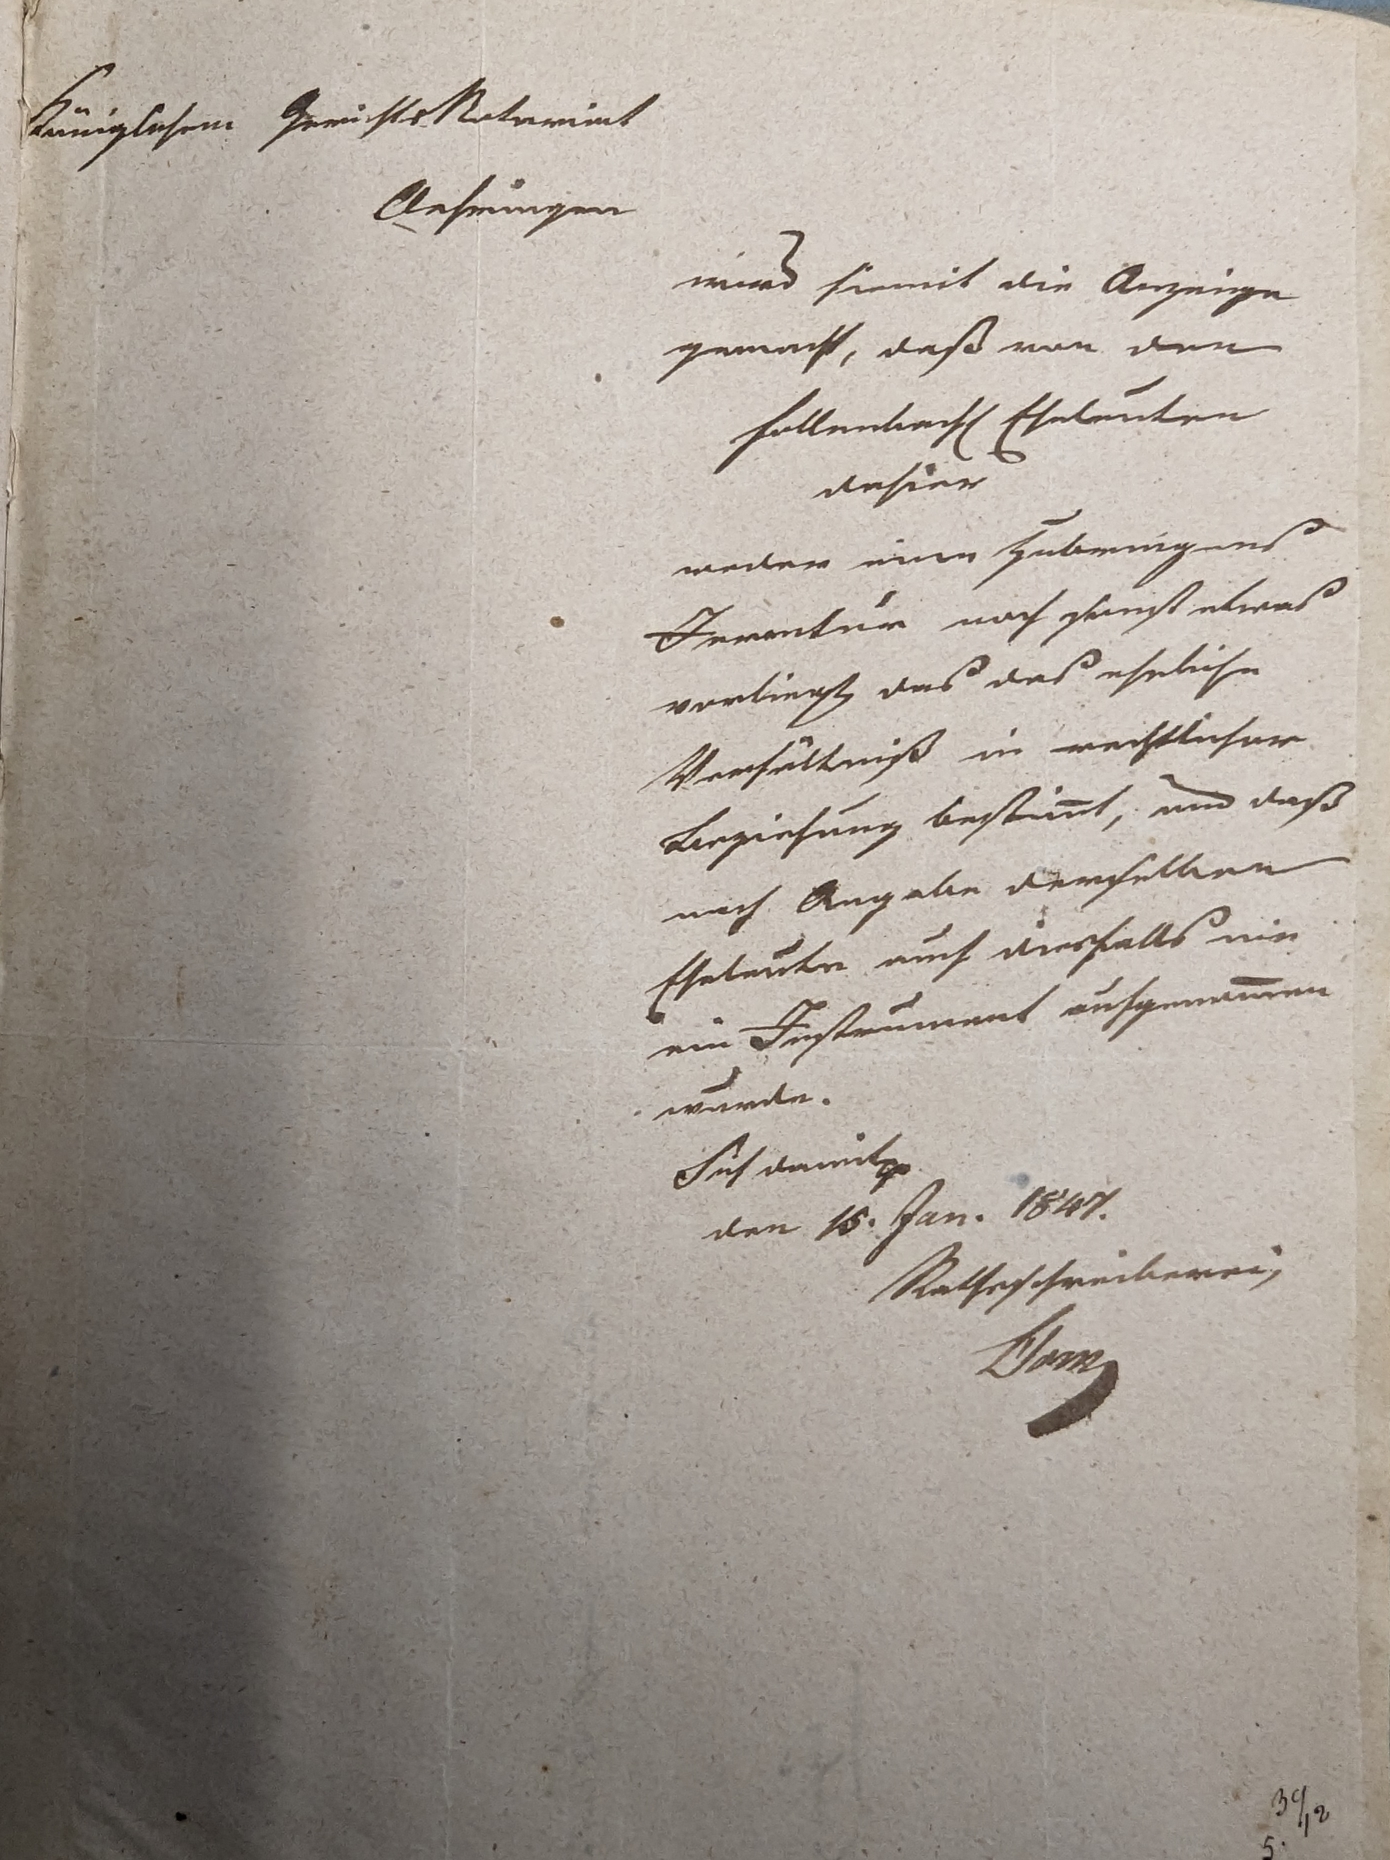 Königlichem Gerichts Notariat
Oehringen
wird hiemit die Anzeige
gemacht, daß von den
Hollenbach Eheleuten
dahier
weder eine Zubringens
Inventur noch sonst etwas
vorliegt das das eheliche
Verhältniß in rechtlicher
Beziehung bestimt, und daß
nach Angabe derselben
Eheleute auch diesfalls nie
ein Instrument aufgenomen
wurde.
Sich damit
den 15. Jan. 1847.
Rathsschreiberei,
39/12
5.